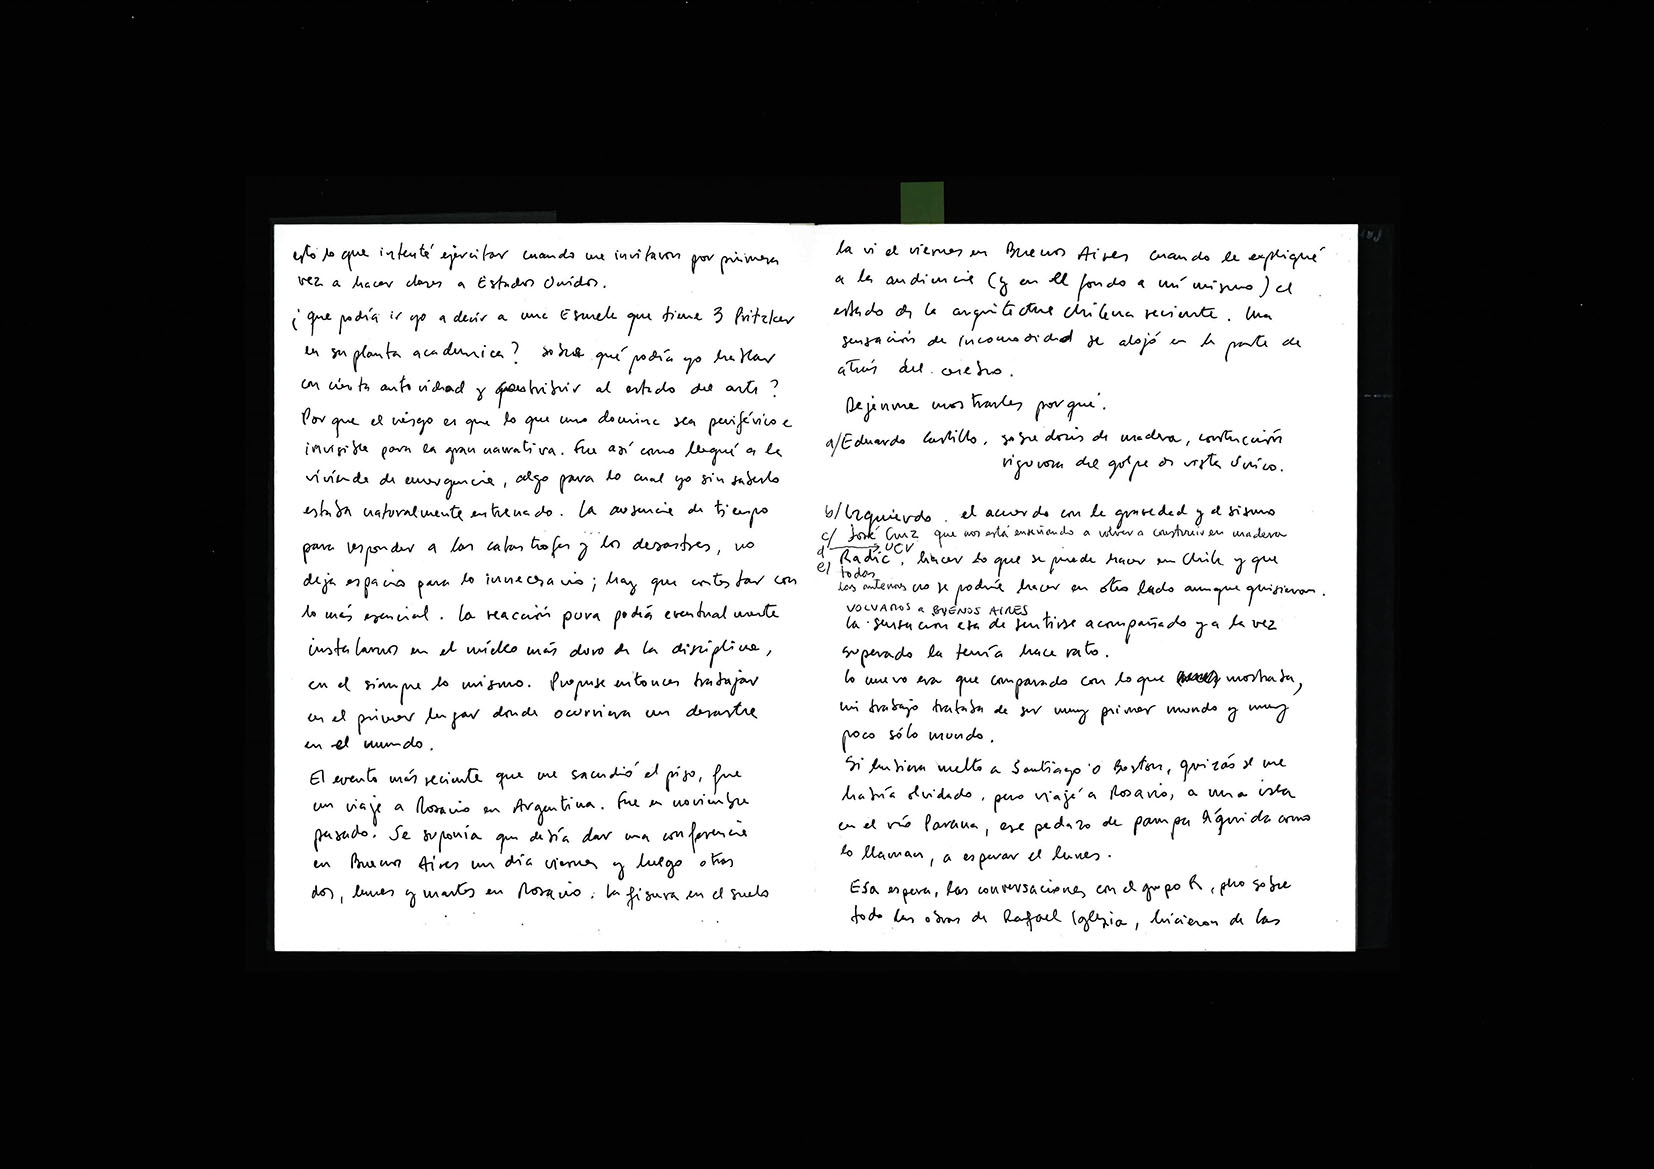 esto lo que intenté ejercitar cuando me invitaron por primera
vez a hacer clases a Estados Unidos.
¿que podía ir yo a decir a una Escuela que tiene 3 Pritzker
en su planta academica? sobre qué podía yo hablar
con cierta autoridad y contribuir al estado del arte?
Porque el riesgo es que lo que uno domina sea periférico e
invisible para la gran narrativa. Fue así como llegué a la
vivienda de emergencia, algo para lo cual yo sin saberlo
estaba naturalmente entrenado. La ausencia de tiempo
para responder a las catastrofes y los desastres, no
deja espacio para lo innecesario; hay que contestar con
lo más esencial. La reacción pura podía eventualmente
instalarnos en el núcleo más duro de la disciplina,
en el siempre lo mismo. Propuse entonces trabajar
en el primer lugar donde ocurriera un desastre
en el mundo.
El evento más reciente que me sacudió el piso, fue
un viaje a Rosario en Argentina. Fue en noviembre
pasado. Se suponía que debía dar una conferencia
en Buenos Aires un día viernes y luego otras
dos, lunes y martes en Rosario. La fisura en el suelo
la vi el viernes en Buenos Aires cuando le expliqué
a la audiencia (y en el fondo a mí mismo) el
estado de la arquitectura chilena reciente. Una
sensación de incomodidad se alojó en la parte de
atrás del cerebro.
Dejenme mostrarles porqué.
a/ Eduardo Castillo. sobre dosis de madera, construcción
rigurosa del golpe de vista único.
b/ Izquierdo. el acuerdo con la gravedad y el sismo
c/ José Cruz que nos está enseñando a volver a construir en madera
d UCV
e/ Radic. hacer lo que se puede hacer en Chile y que
todas
las anteriores no se podría hacer en otro lado aunque quisieran.
VOLVAMOS a BUENOS AIRES
La sensación esa de sentirse acompañado y a la vez
superado la tenía hace rato.
Lo nuevo era que comparado con lo que mostraba,
mi trabajo trataba de ser muy primer mundo y muy
poco sólo mundo.
Si hubiera vuelto a Santiago o Boston, quizás se me
habría olvidado, pero viajé a Rosario, a una isla
en el río Parana, ese pedazo de pampa líquida como
lo llaman, a esperar el lunes.
Esa espera, las conversaciones con el grupo R, pero sobre
todo las obras de Rafael Iglesia, hicieron de las